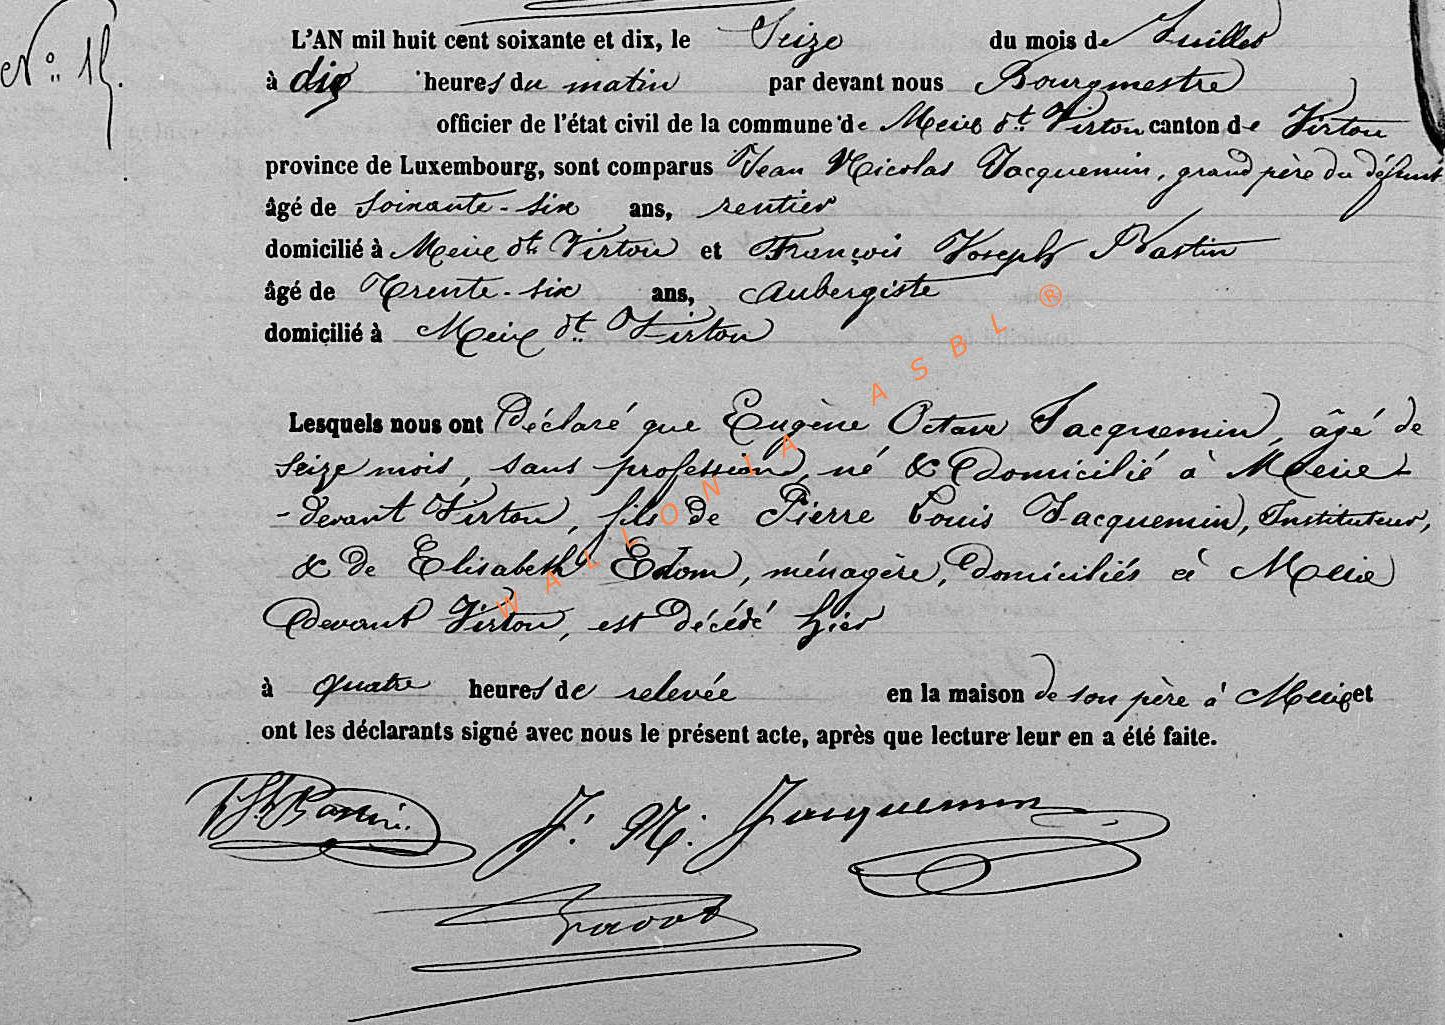 N° 15.
L'AN mil huit cent soixante et dix, le Seize du mois de Juillet
à dix heures du matin par devant nous Bourgmestre
officier de l'état civil de la commune de Meix dt Virton canton de Virton
province de Luxembourg, sont comparus Jean Nicolas Jacquemin, grand père du défunt
âgé de soixante-six ans, rentier
domicilié à Meix dt Virton et François Joseph Bastin
âgé de Trente-six ans, aubergiste
domicilié à Meix dt Virton
Lesquels nous ont Déclaré que Eugène Octave Jacquemin, âgé de
seize mois, sans profession, né & Domicilié à Meix-
-devant Virton, fils de Pierre Louis Jacquemin, Instituteur,
& de Elisabeth Edom, ménagère, Domiciliés à Meix
Devant Virton, est Décédé hier
à quatre heures de relevée en la maison de son père à Meix et
ont les déclarants signé avec nous le présent acte, après que lecture leur en a été faite.
Bastin. J. N. Jacquemin
WALLONIA ASBL ®